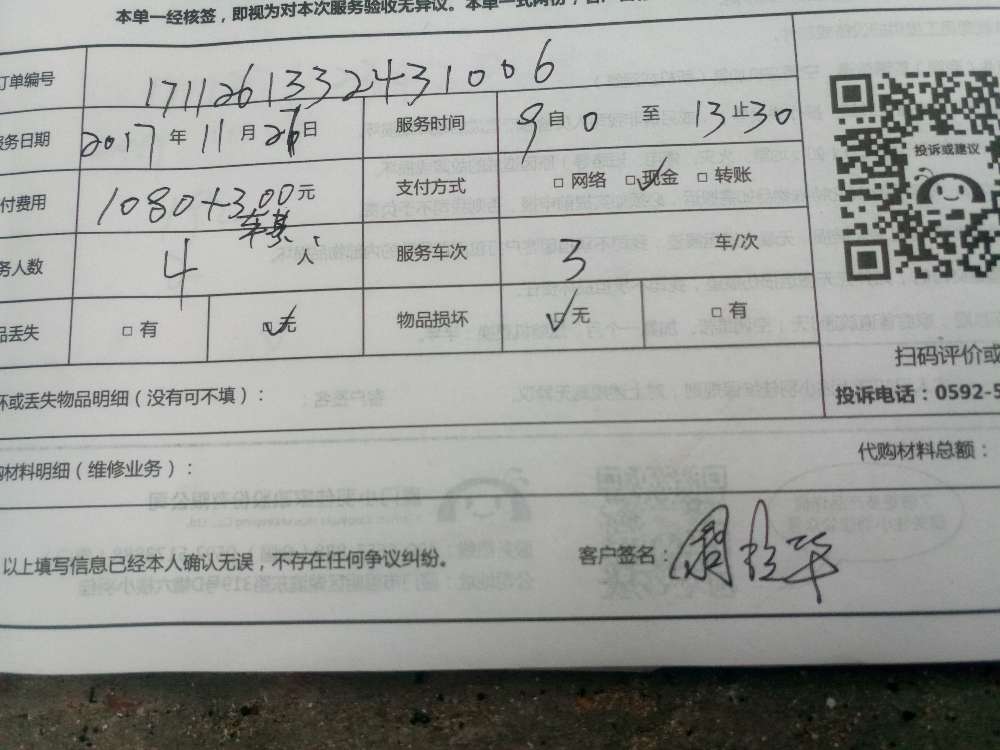 本单一经核签，即视为对本次服务验收无异议。本单一式两份，客户
订单编号 1711261332431006
服务日期 2017 年 11 月 26 日 服务时间 9 自 0 至 13 止 30
付费用 1080+300 元 支付方式 □ 网络 □ 现金 □ 转账
务人数 4 人 服务车次 3 车/次
品丢失 □ 有 □ 无 物品损坏 □ 无 □ 有
投诉或建议
扫码评价或
坏或丢失物品明细（没有可不填）： 投诉电话：0592-5
购材料明细（维修业务）： 代购材料总额：
以上填写信息已经本人确认无误，不存在任何争议纠纷。 客户签名：